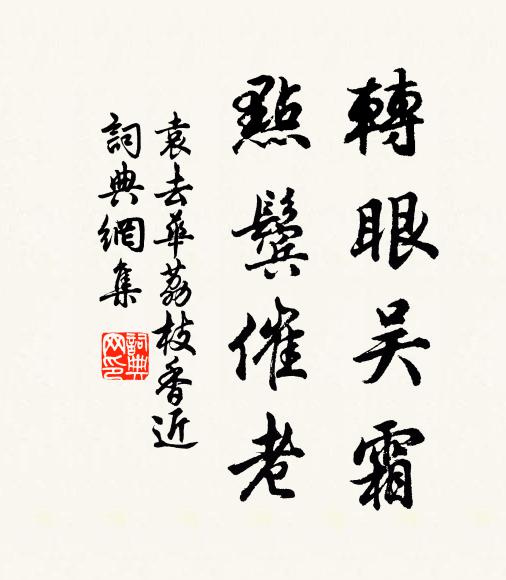 轉眼吴霜
點鬢催老
袁去華荔枝香近
詞典網集
詞典网印